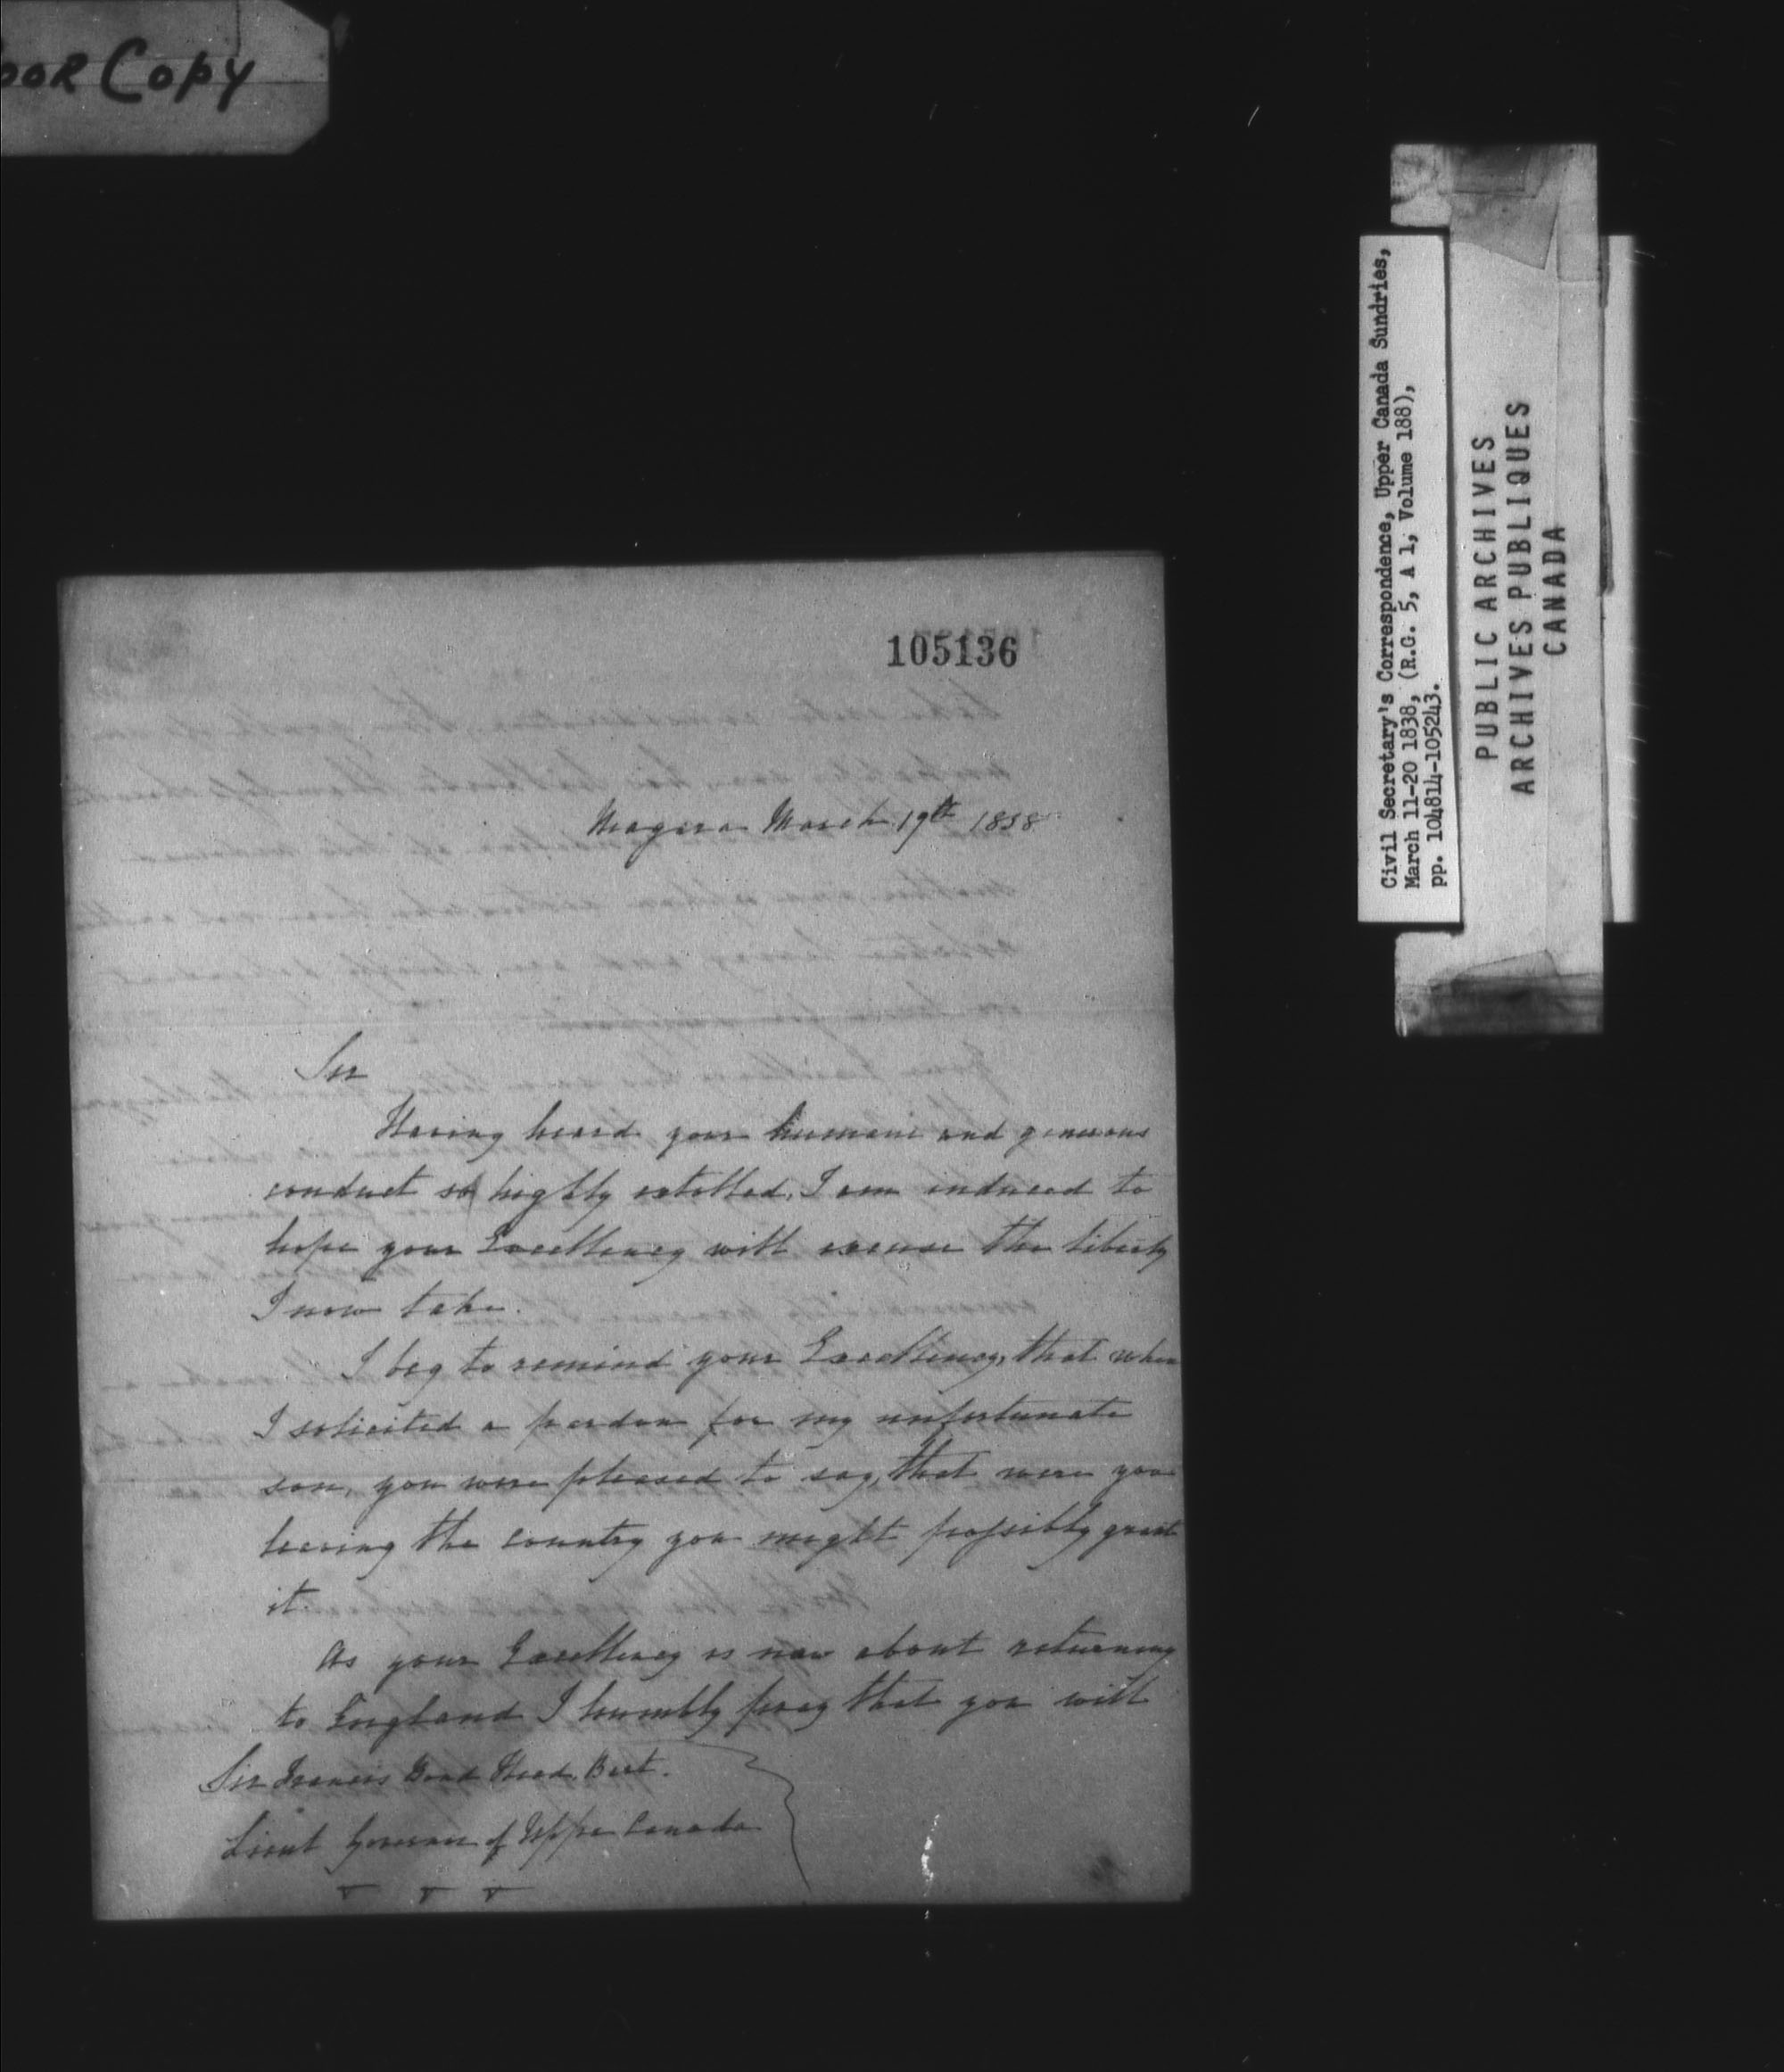 oor Copy
105136
Niagara March 19th 1838
Sir
Having heard your humane and generous
conduct so highly extolled, I am induced to
hope your Excellency will excuse the liberty
I now take.
I beg to remind your Excellency, that when
I solicited a pardon for my unfortunate
son, you were pleased to say, that were you
leaving the country you might possibly grant
it.
As your Excellency is now about returning
to England I humbly pray that you will
Sir Francis Bond Head, Bart.
Lieut Governor of Upper Canada
Civil Secretary's Correspondence, Upper Canada Sundries,
March 11-20 1838, (R.G. 5, A 1, Volume 188),
pp. 104814-105243.
PUBLIC ARCHIVES
ARCHIVES PUBLIQUES
CANADA